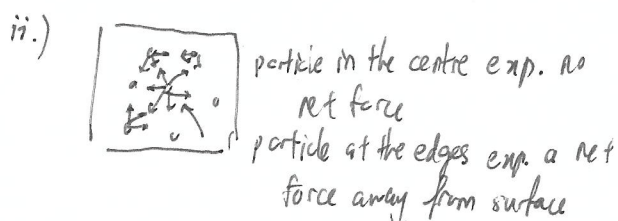 ii.)
particle in the centre exp. no
net force
particle at the edges exp. a net
force away from surface